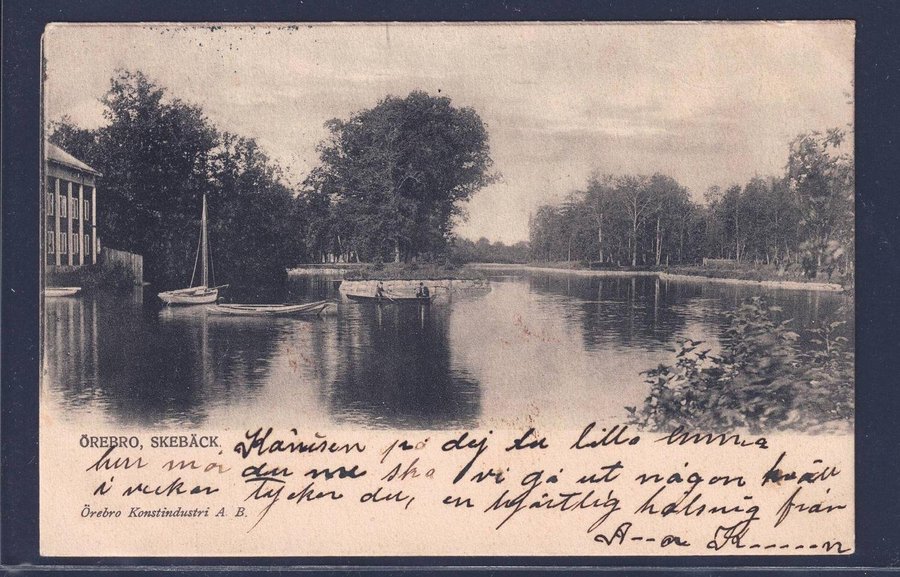 ÖREBRO, SKEBÄCK.
på dej du lilla Emma
hur mår du nu ska vi gå ut någon kväll
i veckan tycker du, en hjärtlig hälsnig från
Örebro Konstindustri A. B.
A---a K------n